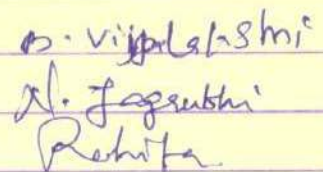 B. Vijjalakshmi
N. Jagruthi
Rohita